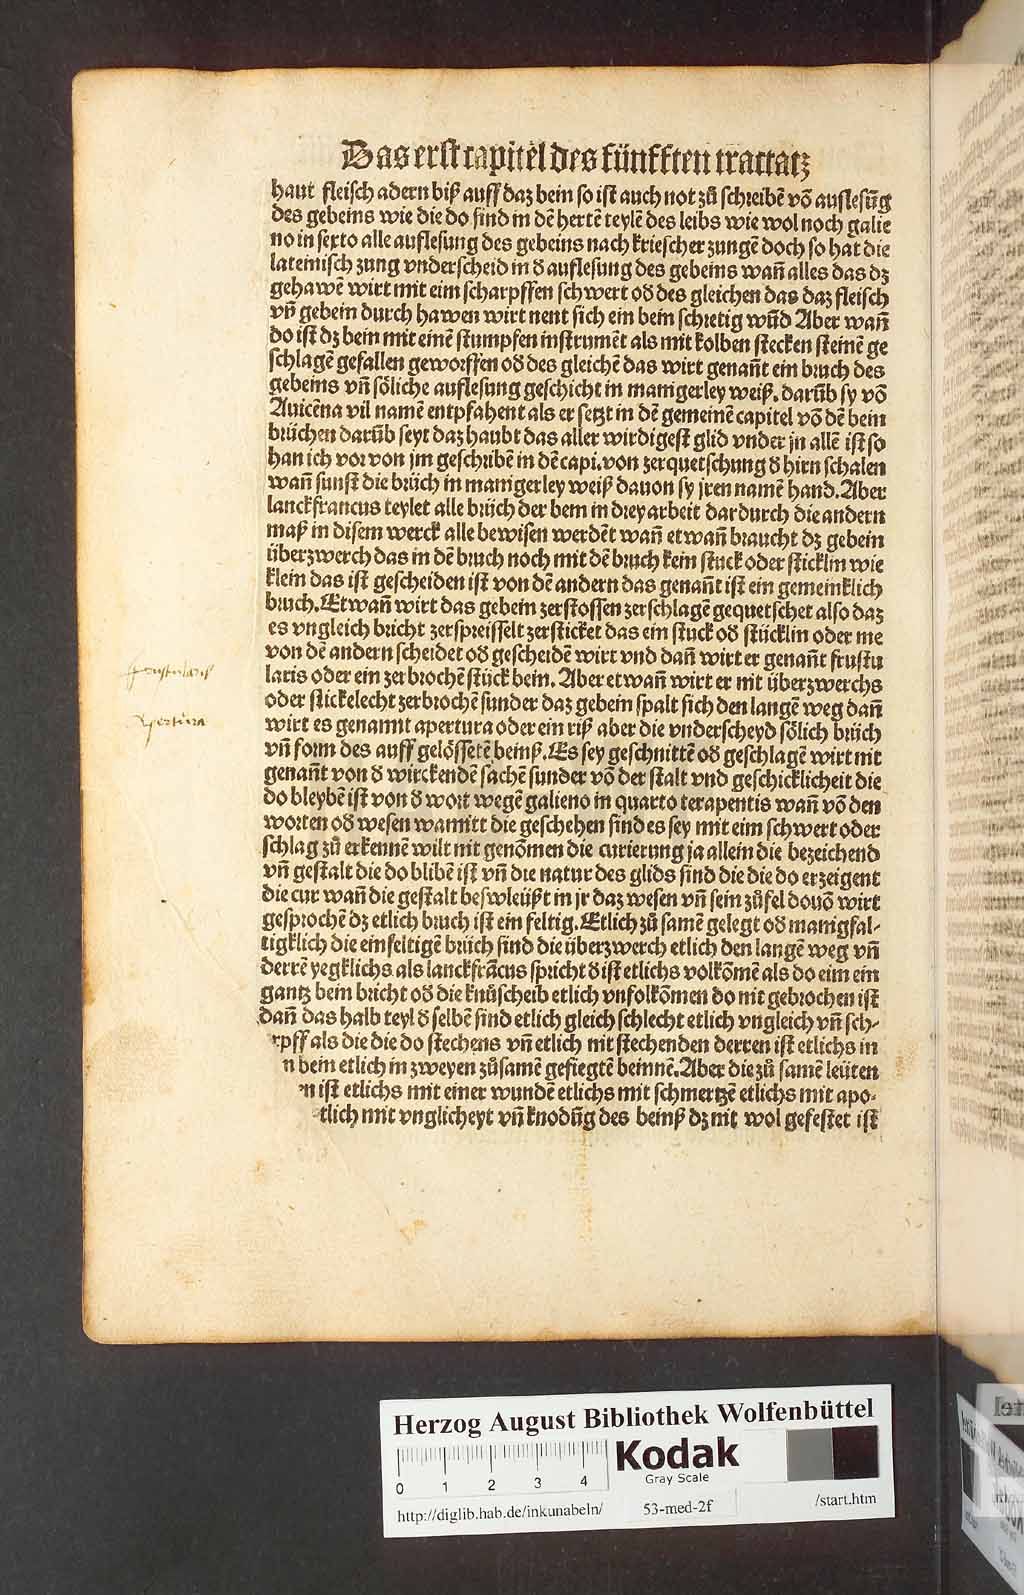 Das erst capitel des fünfften tractatz
haut fleisch adern biß auff daz bein so ist auch not zů schreibẽ võ auflesũg
des gebeins wie die do sind in dẽ hertẽ teylẽ des leibs wie wol noch galie
no in sexto alle auflesung des gebeins nach kriescher zungẽ doch so hat die
lateinisch zung vnderscheid in d auflesung des gebeins wañ alles das dz
gehawẽ wirt mit eim scharpffen schwert od des gleichen das daz fleisch
vñ gebein durch hawen wirt nent sich ein bein schretig wũd Aber wañ
do ist dz bein mit einẽ stumpfen instrumẽt als mit kolben stecken steinẽ ge
schlagẽ gefallen geworffen od des gleichẽ das wirt genañt ein bruch des
gebeins vñ söliche auflesung geschicht in manigerley weiß. darũb sy võ
Auicẽna vil namẽ entpfahent als er setzt in dẽ gemeinẽ capitel võ dẽ bein
brüchen darũb seyt daz haubt das aller wirdigest glid vnder jn allẽ ist so
han ich vor von jm geschribẽ in dẽ capi. von zerquetschung d hirn schalen
wañ sunst die brüch in manigerley weiß dauon sy jren namẽ hand. Aber
lanckfrancus teylet alle brüch der bein in drey arbeit dardurch die andern
maß in disem werck alle bewisen werdẽt wañ etwañ braucht dz gebein
überzwerch das in dẽ bruch noch mit dẽ bruch kein stuck oder sticklin wie
klein das ist gescheiden ist von dẽ andern das genañt ist ein gemeinklich
bruch. Etwañ wirt das gebein zerstossen zerschlagẽ gequetschet also daz
es vngleich bricht zerspreisselt zersticket das ein stuck od stücklin oder me
von dẽ andern scheidet od gescheidẽ wirt vnd dañ wirt er genañt frustu
laris oder ein zerbrochẽ stück bein. Aber etwañ wirt er nit überzwerchs
oder stickelecht zerbrochẽ sunder daz gebein spalt sich den langẽ weg dañ
wirt es genannt apertura oder ein riß aber die vnderscheyd sölich brüch
vñ form des auff gelössetẽ beinß. Es sey geschnittẽ od geschlagẽ wirt nit
genañt von d wirckendẽ sachẽ sunder võ der stalt vnd geschicklicheit die
do bleybẽ ist von d wort wegẽ galieno in quarto terapentis wañ võ den
worten od wesen wamitt die geschehen sind es sey mit eim schwert oder
schlag zů erkennẽ wilt nit genõmen die curierung ja allein die bezeichend
vñ gestalt die do blibẽ ist vñ die natur des glids sind die die do erzeigent
die cur wañ die gestalt beswleüßt in jr daz wesen vñ sein zůfel douõ wirt
gesprochẽ dz etlich bruch ist ein feltig. Etlich zů samẽ gelegt od manigfal-
tigklich die einfeltigẽ brüch sind die überzwerch etlich den langẽ weg vñ
derrẽ yegklichs als lanckfrãcus spricht d ist etlichs volkõmẽ als do eim ein
gantz bein bricht od die knůscheib etlich vnfolkõmen do nit gebrochen ist
dañ das halb teyl d selbẽ sind etlich gleich schlecht etlich vngleich vñ sch-
rpff als die die do stechens vñ etlich nit stechenden derren ist etlichs in
n bein etlich in zweyen zůsamẽ gefiegtẽ beinnẽ. Aber die zů samẽ leüten
n ist etlichs mit einer wundẽ etlichs mit schmertzẽ etlichs mit apo-
tlich mit vnglicheyt vñ knodũg des beinß dz nit wol gefestet ist
frustularis
Apertura
Herzog August Bibliothek Wolfenbüttel
Kodak
Gray Scale
0 1 2 3 4
http://diglib.hab.de/inkunabeln/ 53-med-2f /start.htm